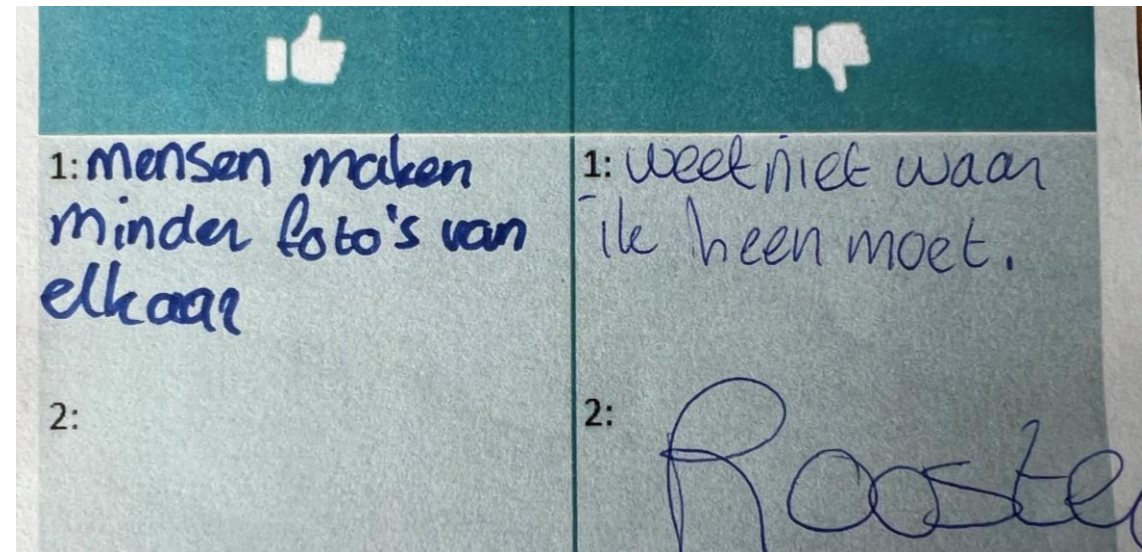 1: mensen maken
minder foto's van
elkaar
2:
1: weet niet waar
ik heen moet.
2: